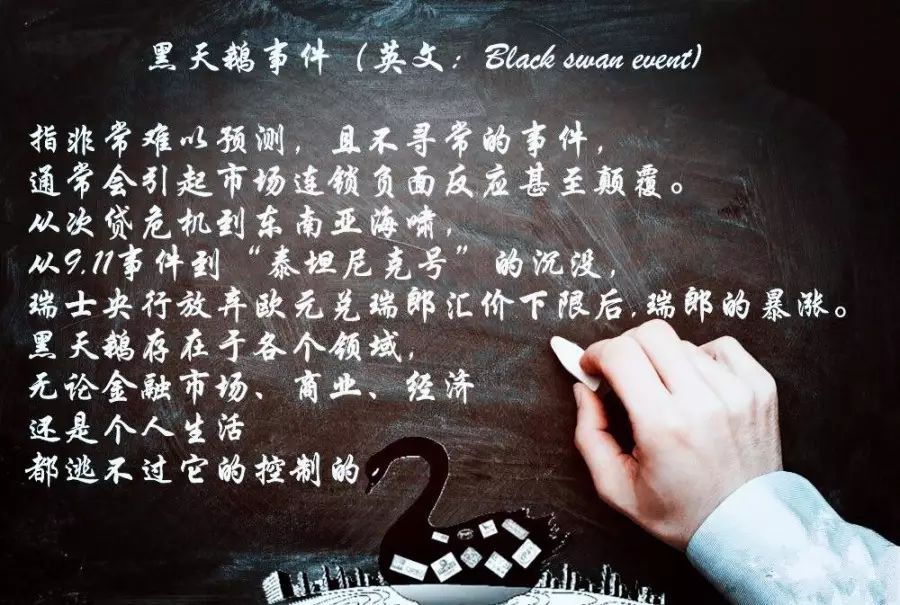 黑天鹅事件（英文：Black swan event）
指非常难以预测，且不寻常的事件，
通常会引起市场连锁负面反应甚至颠覆。
从次贷危机到东南亚海啸，
从9.11事件到“泰坦尼克号”的沉没，
瑞士央行放弃欧元兑瑞郎汇价下限后,瑞郎的暴涨。
黑天鹅存在于各个领域，
无论金融市场、商业、经济
还是个人生活
都逃不过它的控制的，